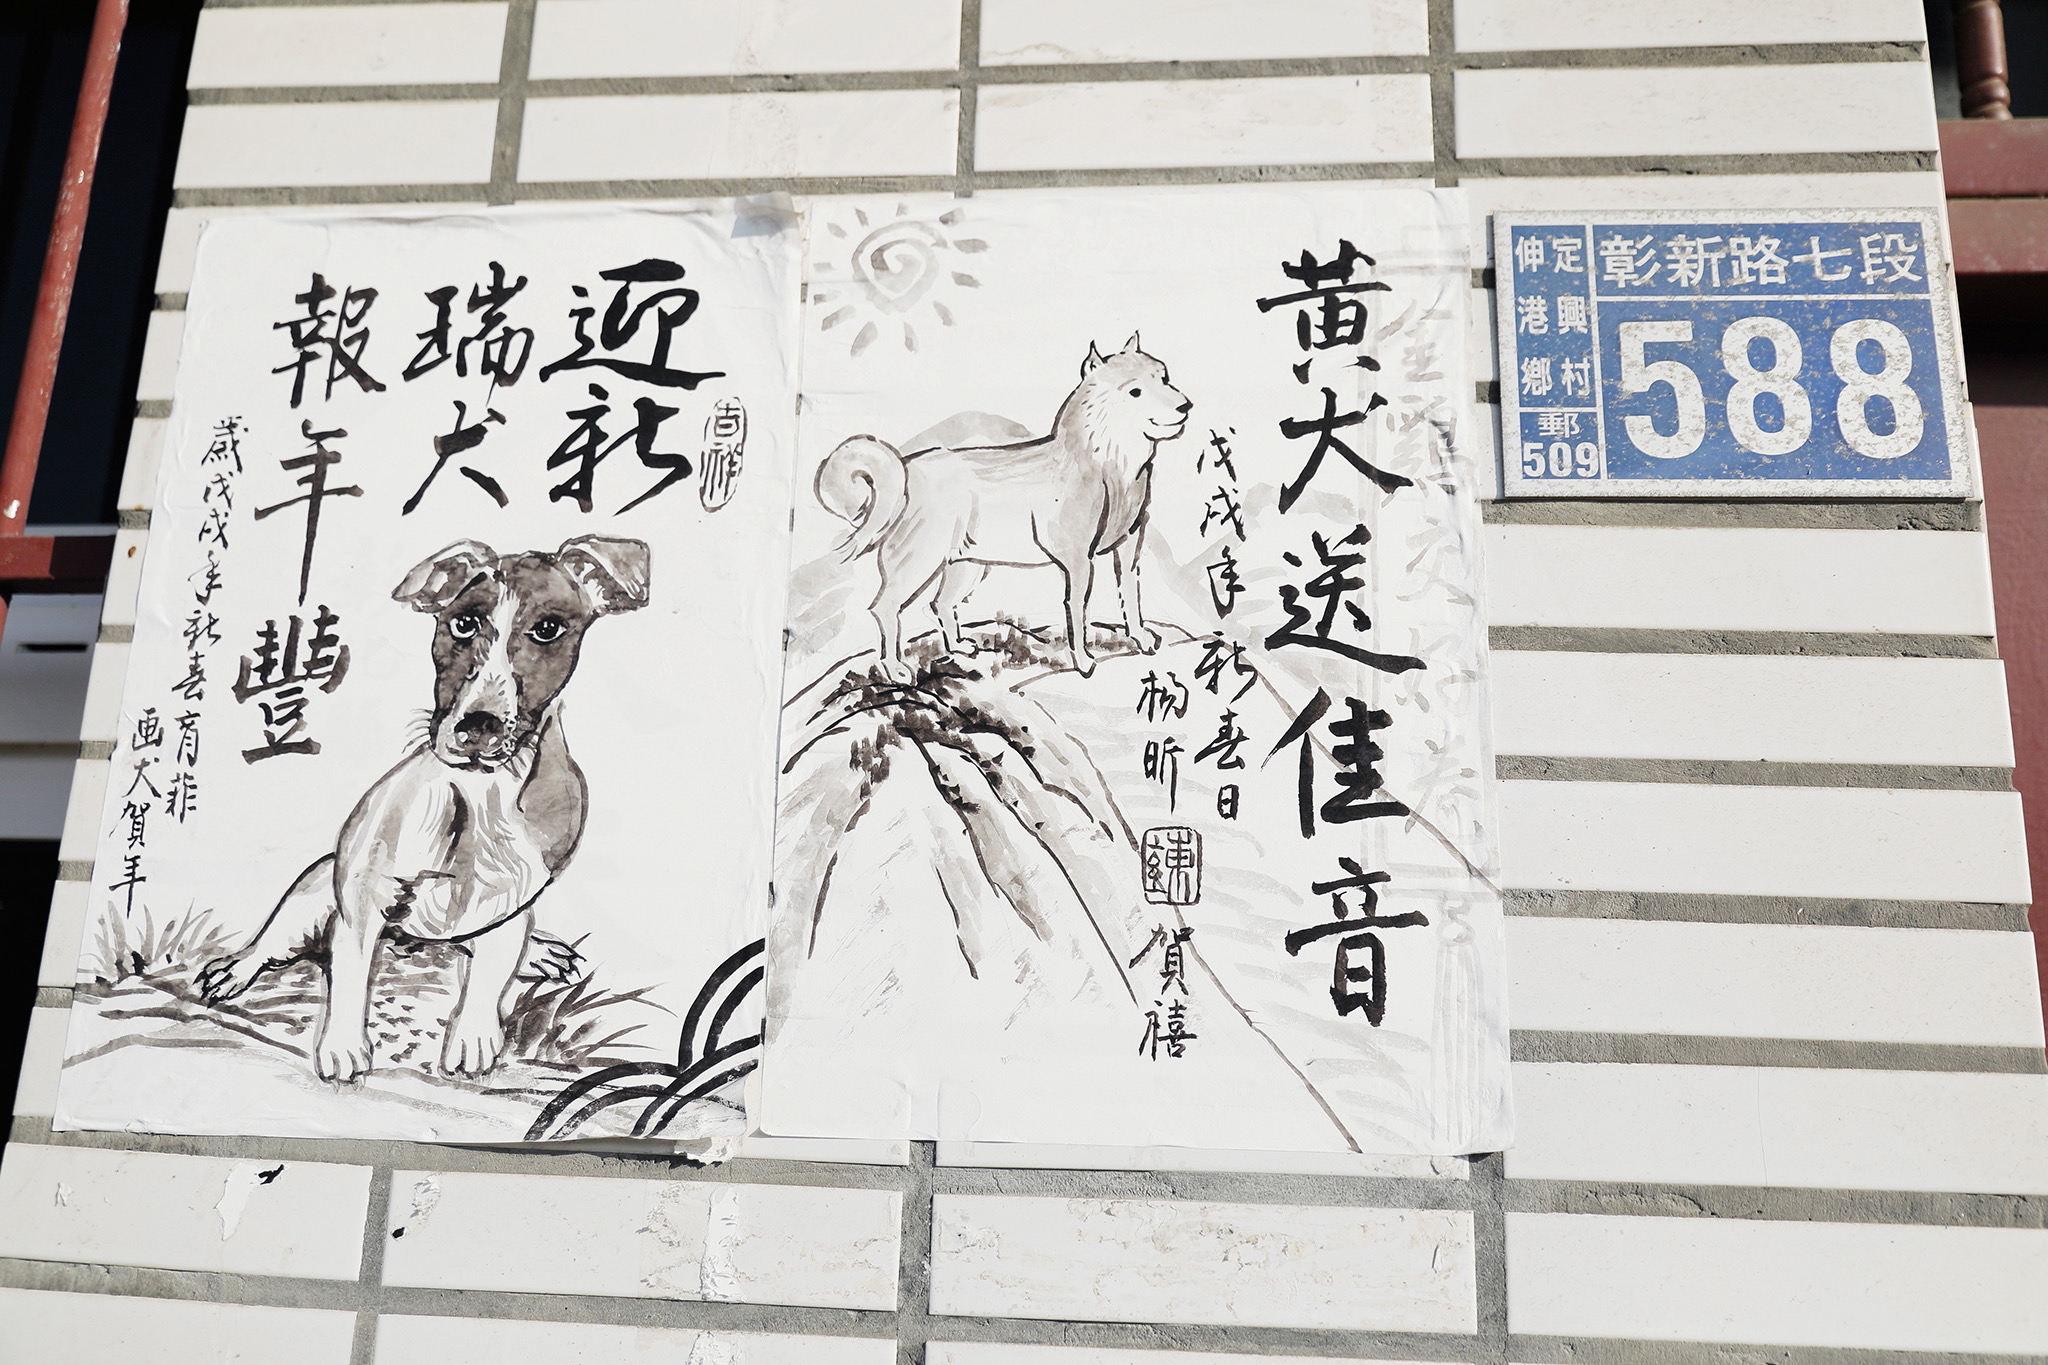 迎新
瑞犬
報年豐
吉祥
歲戊戌年新春育菲
画犬賀年
黄犬送佳音
戊戌年新春日
楊昕
賀禧
金雞
彰新路七段
588
定興村
伸港鄉
郵
509